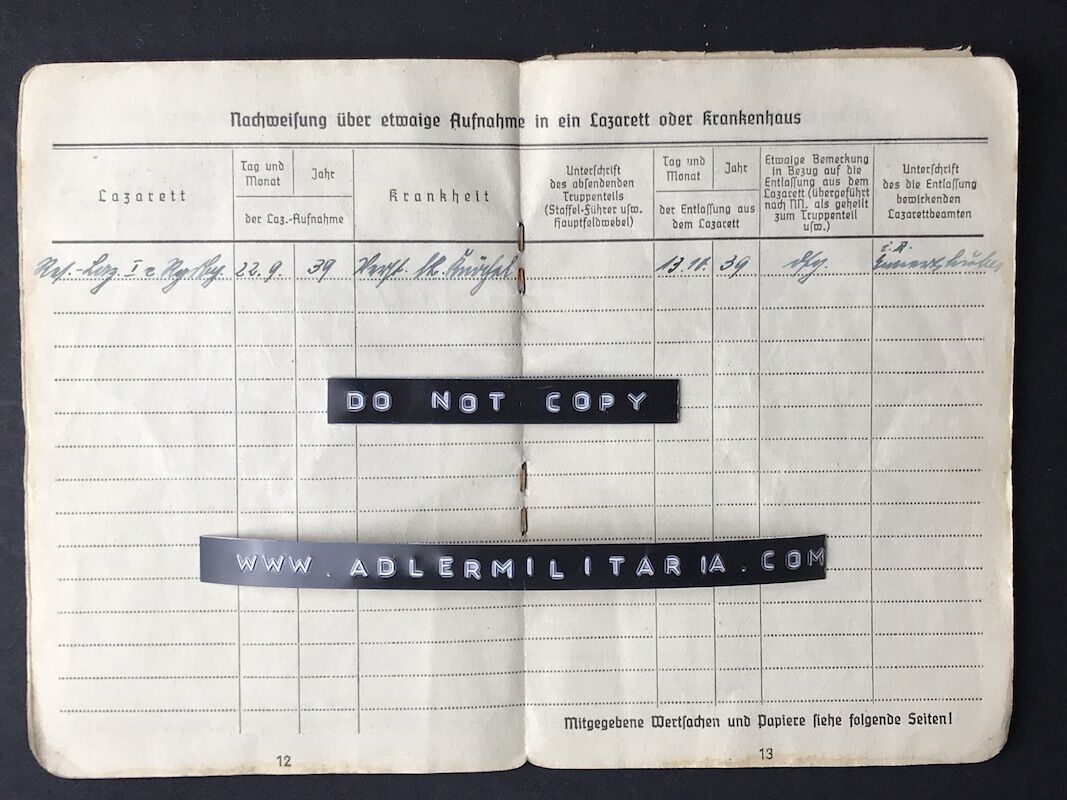 Nachweisung über etwaige Aufnahme in ein Lazarett oder Krankenhaus
Lazarett
Tag und Monat
Jahr
der Laz.-Aufnahme
Krankheit
Unterschrift
des absendenden
Truppenteils
(Staffel-Führer usw.
Hauptfeldwebel)
Tag und Monat
Jahr
der Entlassung aus
dem Lazarett
Etwaige Bemerkung
in Bezug auf die
Entlassung aus dem
Lazarett (übergeführt
nach NN. als geheilt
zum Truppenteil
usw.)
Unterschrift
des die Entlassung
bewirkenden
Lazarettbeamten
Res.-Laz. I 22.9. 39 Knöchel 13.10. 39 dfg. i.A.
DO NOT COPY
WWW.ADLERMILITARIA.COM
Mitgegebene Wertsachen und Papiere siehe folgende Seiten!
12
13